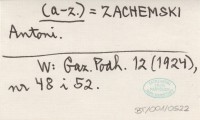 (a-z.) = ZACHEMSKI
Antoni.
W: Gaz. Podh. 12 (1924),
nr 48 i 52.